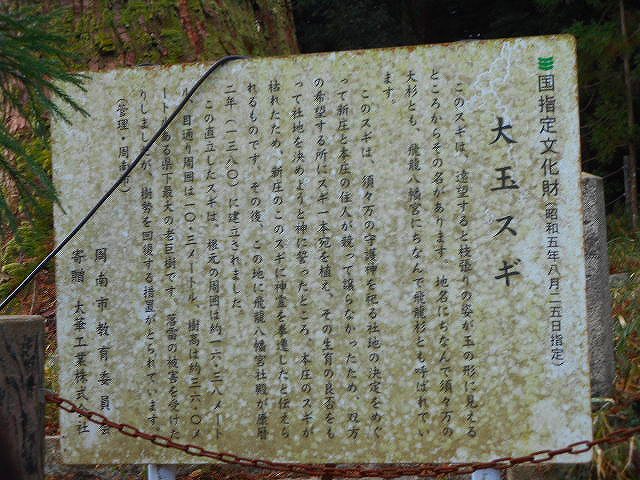 国指定文化財（昭和五年八月二五日指定）
大玉スギ
このスギは、遠望すると枝張りの姿が玉の形に見える
ところからその名があります。地名にちなんで須々万の
大杉とも、飛龍八幡宮にちなんで飛龍杉とも呼ばれてい
ます。
このスギは、須々万の守護神を祀る社地の決定をめぐ
って新庄と本庄の住人が競って譲らなかったため、双方
の希望する所にスギ一本宛を植え、その生育の良否をも
って社地を決めようと神に誓ったところ、本庄のスギが
枯れたため、新庄のこのスギに神霊を奉遷したと伝えら
れるものです。その後、この地に飛龍八幡宮社殿が康暦
二年（一三八〇）に建立されました。
この直立したスギは、根元の周囲は約一六・三八メート
ル、目通り周囲は一〇・三メートル、樹高は約三六・〇メ
ートルある県下最大の老巨樹です。落雷の被害を受けた
りしましたが、樹勢を回復する措置がとられています。
（管理・周南市）
周南市教育委員会
寄贈 大華工業株式会社